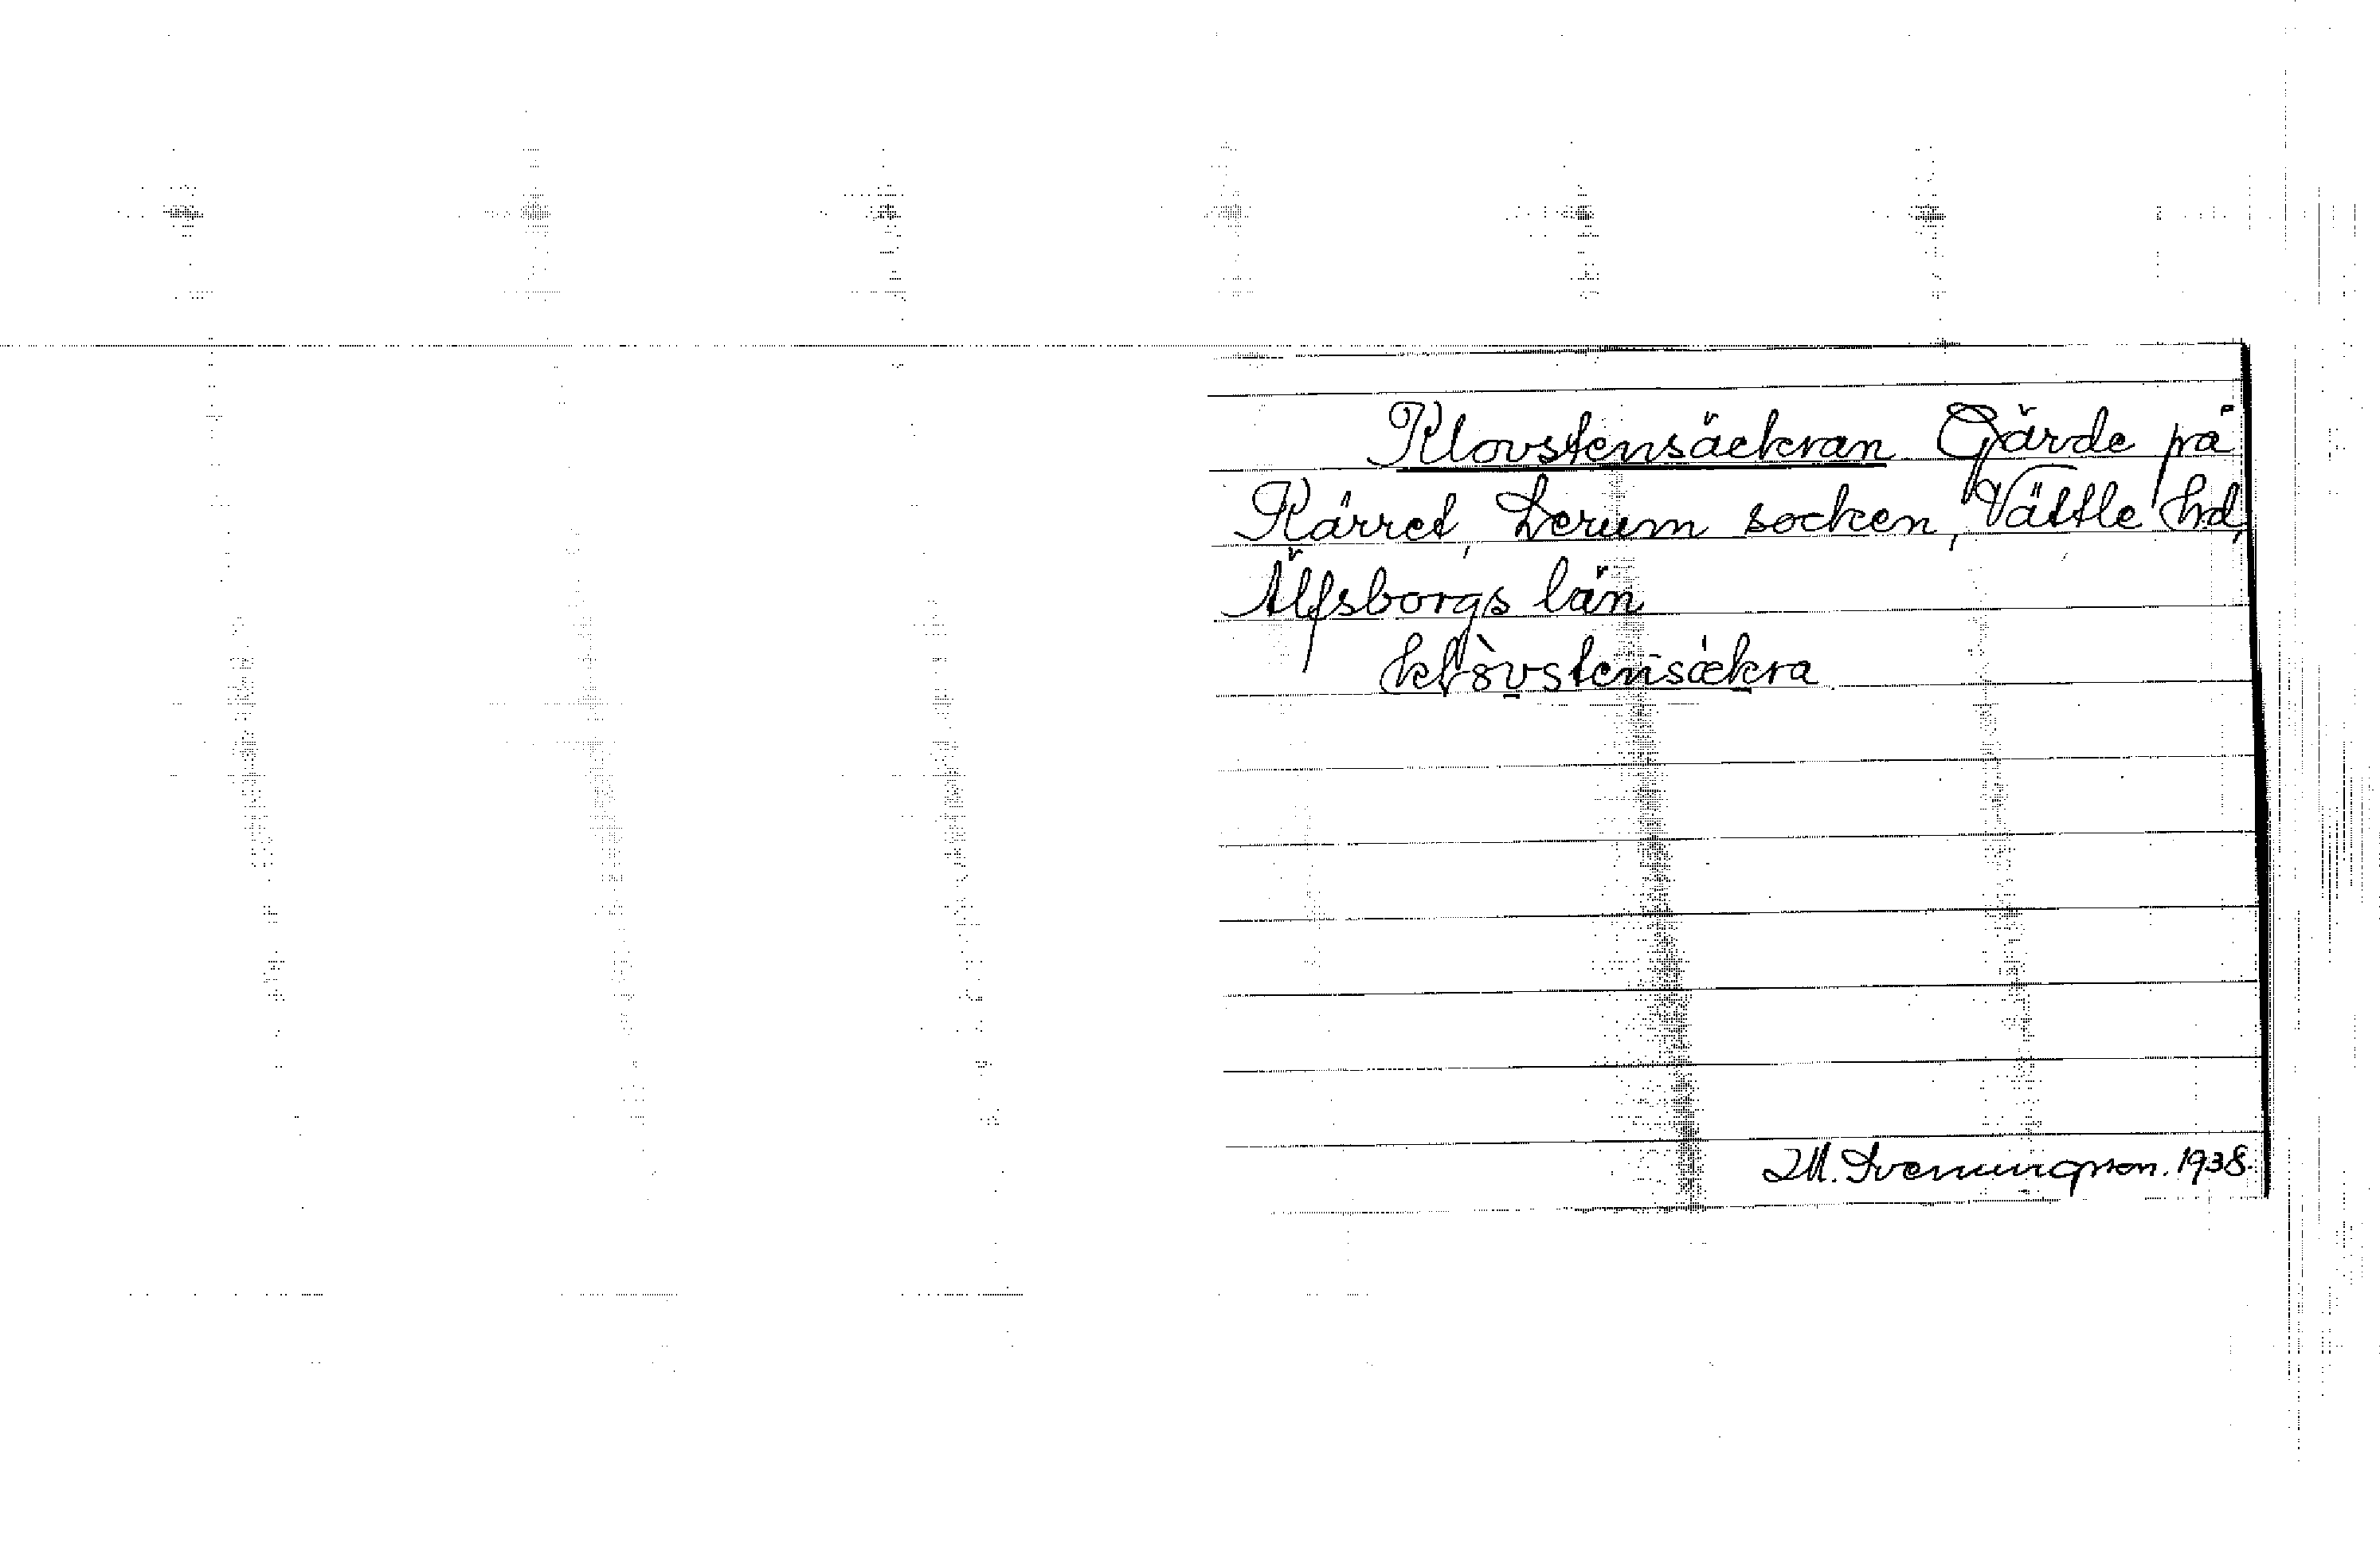 Klovstensäckran Gärde på
Kärret, Lerum socken, Vättle hd,
Älfsborgs län
klòvstensäckra
M. Svenungsson. 1938.